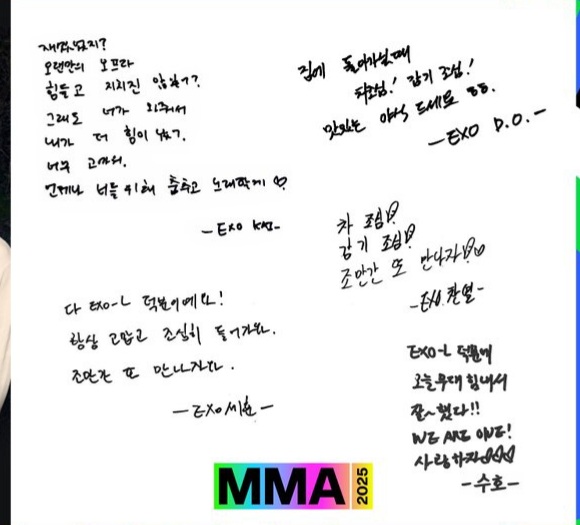 재밌었지?
오랜만의 오프라
힘들고 지치진 않았어?
그래도 너가 와줘서
내가 더 힘이 났어.
너무 고마워.
언제나 너를 위해 춤추고 노래할게 ♡
- EXO KAI -
집에 돌아가실때
차조심! 감기 조심!
맛있는 야식 드세요
- EXO D.O. -
차 조심♡
감기 조심♡
조만간 또 만나자♡♡
- EXO. 찬열 -
다 EXO-L 덕분이에요!
항상 고맙고 조심히 들어가요.
조만간 또 만나자.
- EXO 세훈 -
EXO-L 덕분에
오늘 무대 힘내서
잘~했다!!
WE ARE ONE!
사랑하자♡♡♡
- 수호 -
MMA 2025